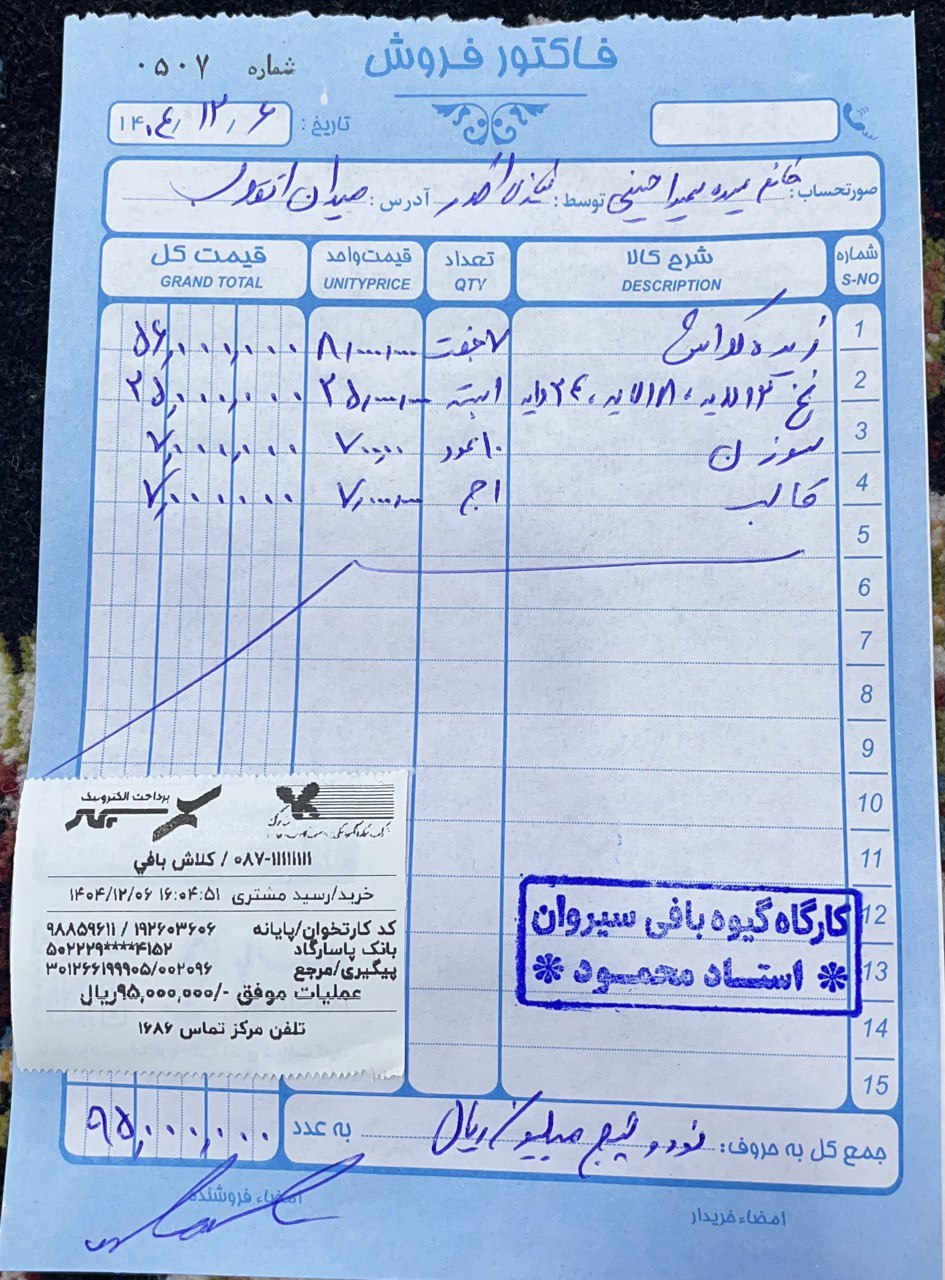 فاکتور فروش
شماره ۰۵۰۷
تاریخ: ۱۴۰۴/۱۲/۶
صورتحساب: خانم سیده سمیرا حسینی توسط: آدرس: میدان انقلاب
شماره S-NO شرح کالا DESCRIPTION تعداد QTY قیمت واحد UNITYPRICE قیمت کل GRAND TOTAL
1 زیره کلاش ۷ جفت ۸,۰۰۰,۰۰۰ ۵۶,۰۰۰,۰۰۰
2 نخ ۱۲ لایه، ۱۸ لایه، ۲۴ لایه ۱ بسته ۲۵,۰۰۰,۰۰۰ ۲۵,۰۰۰,۰۰۰
3 سوزن ۱۰ عدد ۷۰۰,۰۰۰ ۷,۰۰۰,۰۰۰
4 قالب ۱ ج ۷,۰۰۰,۰۰۰ ۷,۰۰۰,۰۰۰
5
6
7
8
9
10
11
12
13
14
15
پرداخت الکترونیک
سپهر
۰۸۷-۱۱۱۱۱۱۱۱ / کلاش بافی
خرید/رسید مشتری ۱۶:۰۴:۵۱ ۱۴۰۴/۱۲/۰۶
کد کارتخوان/پایانه ۱۹۲۶۰۳۶۰۶ / ۹۸۸۵۹۶۱۱
بانک پاسارگاد ۵۰۲۲۲۹****۴۱۵۲
پیگیری/مرجع ۳۰۱۲۶۶۱۹۹۹۰۵/۰۰۲۰۹۶
عملیات موفق -/۹۵,۰۰۰,۰۰۰ریال
تلفن مرکز تماس ۱۶۸۶
کارگاه گیوه بافی سیروان
* استاد محمود *
جمع کل به حروف: نود و پنج میلیون ریال به عدد ۹۵,۰۰۰,۰۰۰
امضاء خریدار امضاء فروشنده